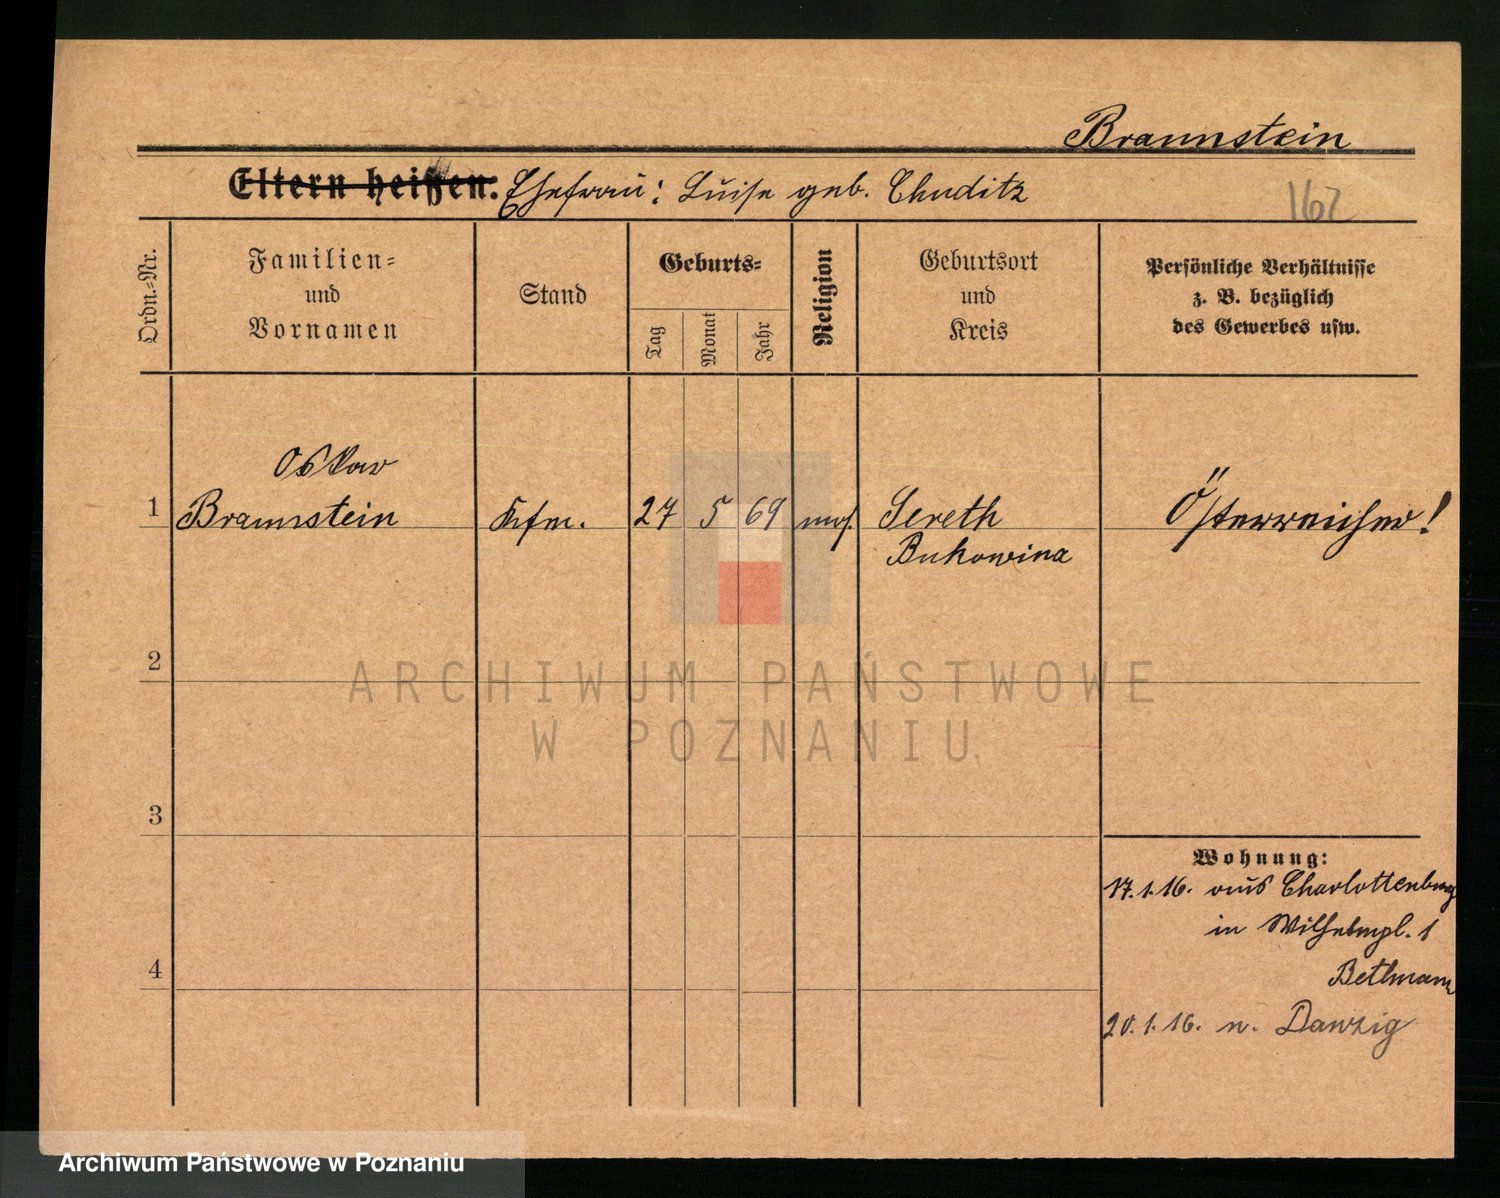 Braunstein
Eltern heißen: Ehefrau: Luise geb. Chuditz
162
Ordn.-Nr.
Familien-
und
Vornamen
Stand
Geburts-
Tag
Monat
Jahr
Religion
Geburtsort
und
Kreis
Persönliche Verhältnisse
z. B. bezüglich
des Gewerbes usw.
Oskar
1 Braunstein Kfm. 27 5 69 mos. Sereth Österreicher!
Bukowina
2
ARCHIWUM PAŃSTWOWE
W POZNANIU
3
Wohnung:
17.1.16. aus Charlottenburg
in Wilhelmpl. 1
4
Bethmann
20.1.16. n. Danzig
Archiwum Państwowe w Poznaniu